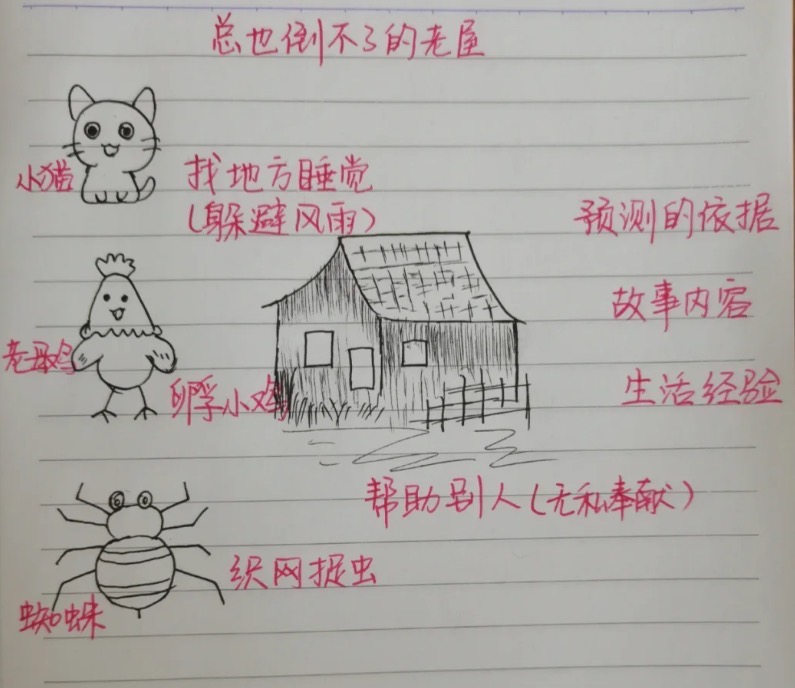 总也倒不了的老屋
小猫
找地方睡觉
(躲避风雨)
预测的依据
故事内容
老母鸡
孵小鸡
生活经验
帮助别人(无私奉献)
织网捉虫
蜘蛛